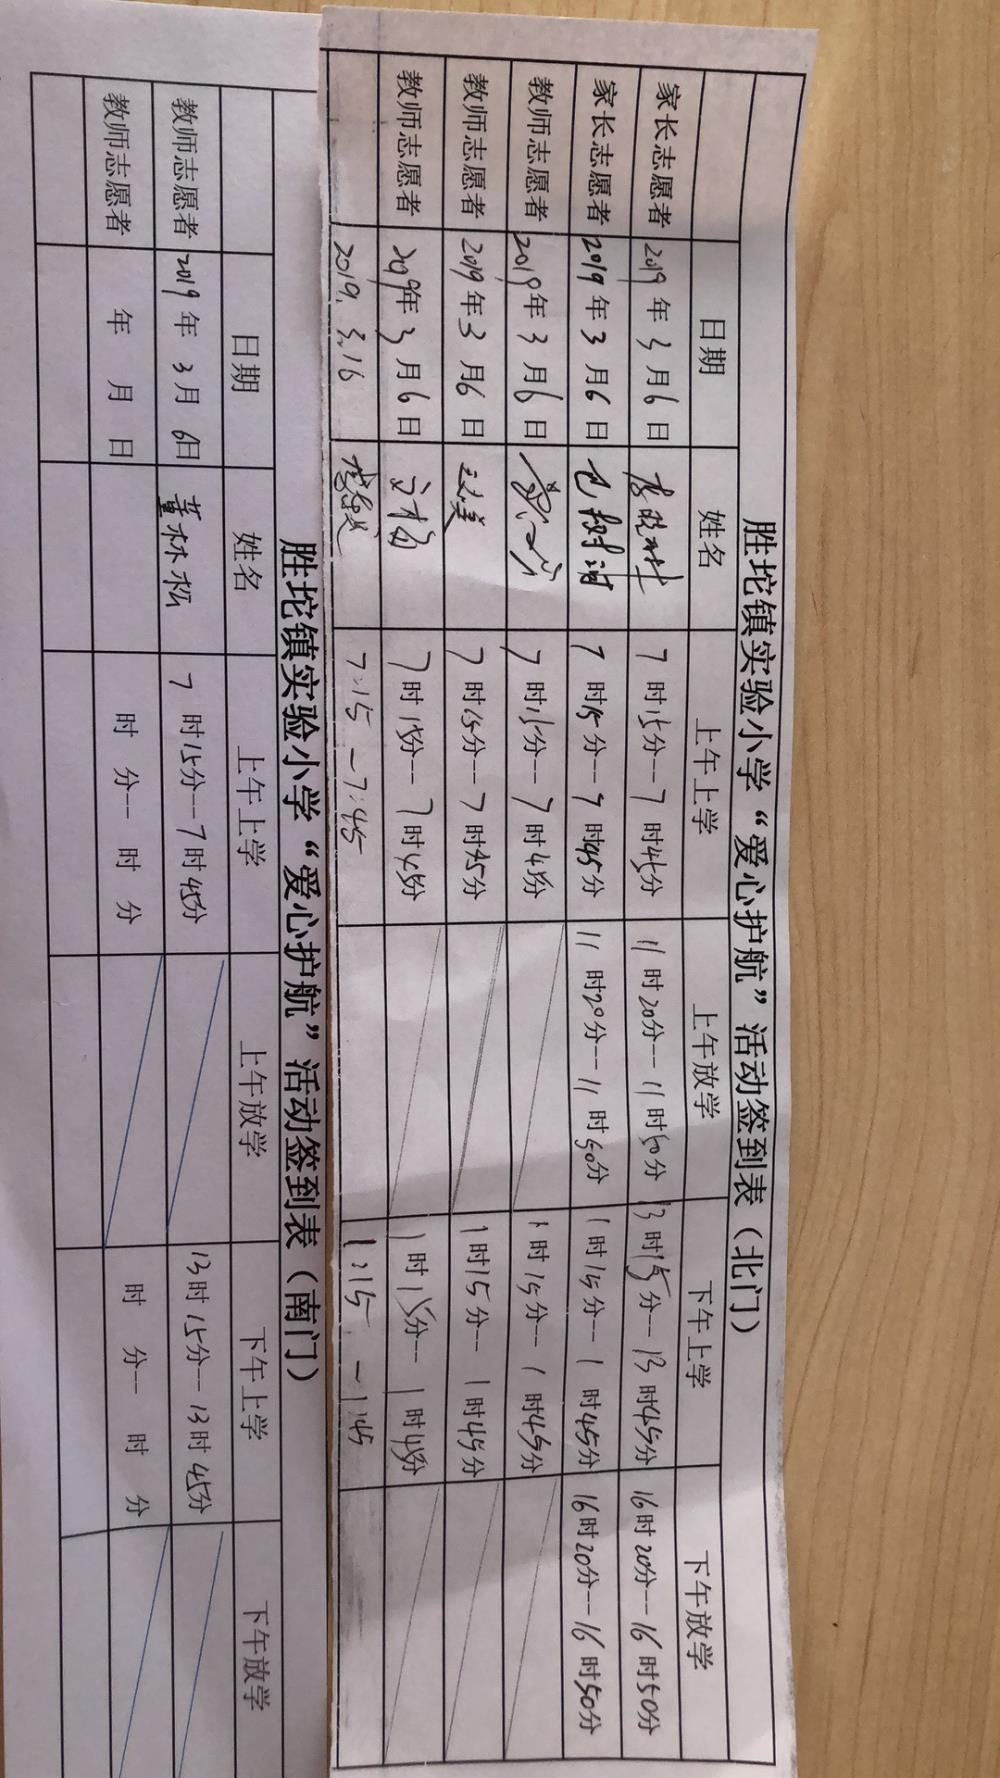 胜坨镇实验小学“爱心护航”活动签到表（北门）
日期 姓名 上午上学 上午放学 下午上学 下午放学
家长志愿者 2019年3月6日 7时15分--7时45分 11时20分--11时50分 13时15分--13时45分 16时20分--16时50分
家长志愿者 2019年3月6日 7时15分--7时45分 11时20分--11时50分 1时15分--1时45分 16时20分--16时50分
教师志愿者 2019年3月6日 7时15分--7时45分 1时15分--1时45分
教师志愿者 2019年3月6日 7时15分--7时45分 1时15分--1时45分
教师志愿者 2019年3月6日 7时15分--7时45分 1时15分--1时45分
2019.3.16 7:15－7:45 1:15－1:45
胜坨镇实验小学“爱心护航”活动签到表（南门）
日期 姓名 上午上学 上午放学 下午上学 下午放学
教师志愿者 2019年3月6日 董林松 7时15分--7时45分 13时15分--13时45分
教师志愿者 年 月 日 时 分-- 时 分 时 分-- 时 分